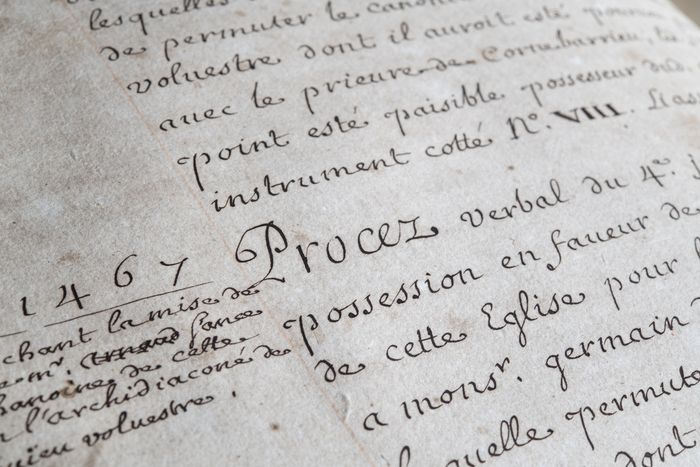 lesquelles
de permuter le canoni
voluestre dont il auroit esté pourveu
avec le prieuré de Cornebarrieu, les
point esté paisible possesseur dud.
instrument cotté N.º VIII. Liass
1467
Procez verbal du 4.e
possession en faueur de
de cette Eglise pour
a monsr. germain
laquelle permuta
dont
chant la mise de
mr. Arnaud
hanoine de cette
l'archidiaconé de
voluestre.